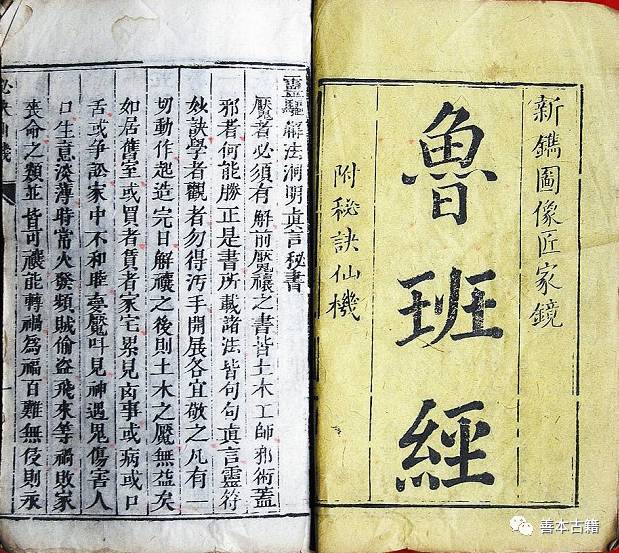 新鐫圖像匠家鏡
魯班經
附秘訣仙機
靈驅解法洞明真言秘書
魘者必須有解前魘禳之書皆土木工師邪術蓋
邪者何能勝正是書所載諸法皆句句真言靈符
妙訣學者觀者勿得汚手開展各宜敬之凡有一
切動作起造完日解禳之後則土木之魘無益矣
如居舊室或買者賃者家宅累見凶事或病或口
舌或爭訟家中不和魘呌見神遇鬼傷害人
口生意淡薄時常火發頻賊偷盜飛來等禍敗家
喪命之類並皆可禳能轉禍為福百難無侵則永
善本古籍